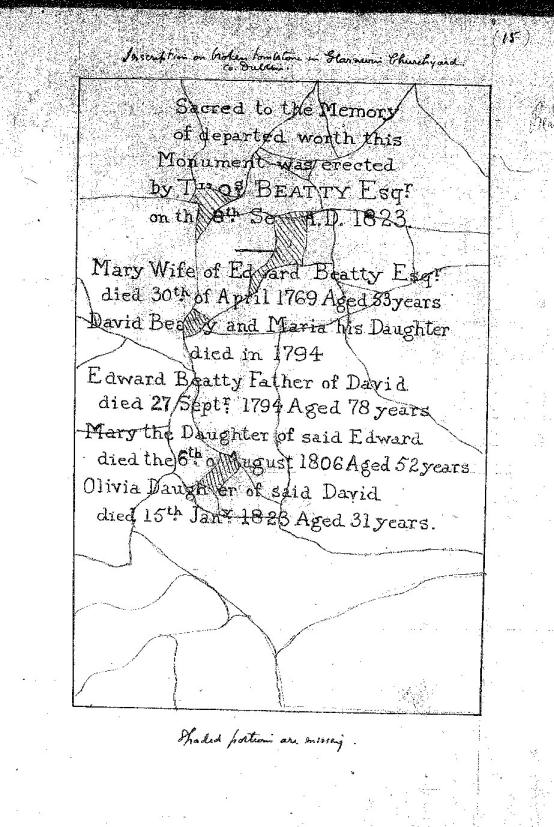 (15)
Inscription on broken tombstone in Glasnevin Churchyard
Co. Dublin.
Sacred to the Memory
of departed worth this
Monument was erected
by Thos BEATTY Esqr
on th 8th Se A.D. 1823.
Mary Wife of Edward Beatty Esqr
died 30th of April 1769 Aged 33 years
David Beatty and Maria his Daughter
died in 1794
Edward Beatty Father of David
died 27 Septr 1794 Aged 78 years
Mary the Daughter of said Edward
died the 6th o August 1806 Aged 52 years
Olivia Daughter of said David
died 15th Jany 1823 Aged 31 years.
Shaded portions are missing.